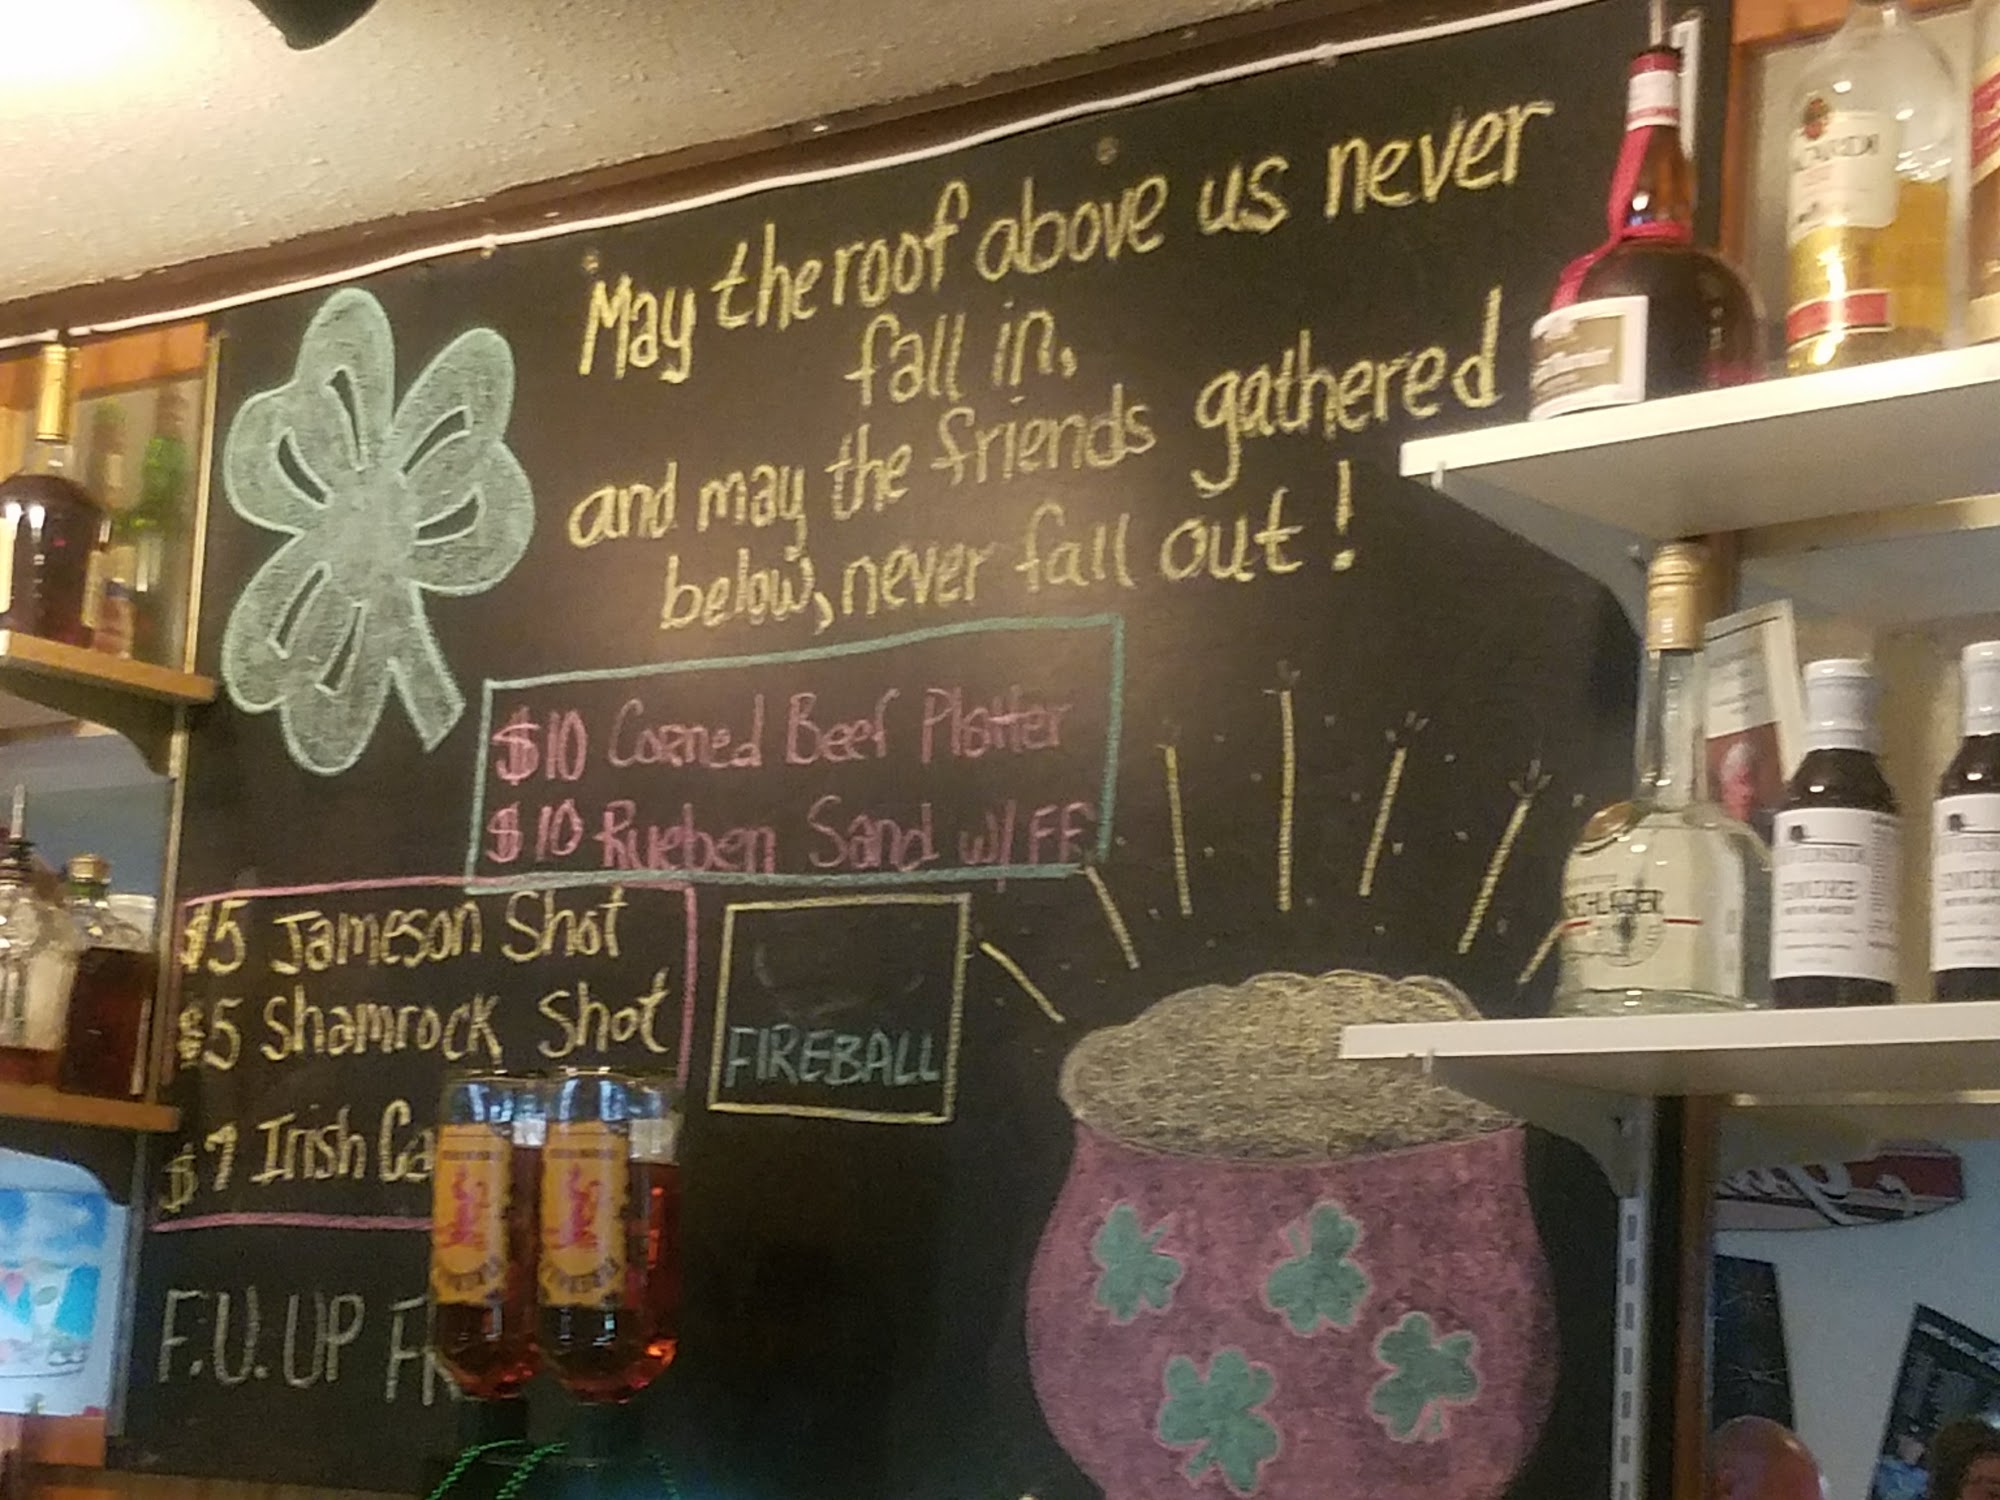 May the roof above us never
fall in,
and may the friends gathered
below, never fall out!
$10 Corned Beef Platter
$10 Rueben Sand w/ FF
$5 Jameson Shot
$5 Shamrock Shot
$7 Irish Ca
FIREBALL
F.U. UP FR